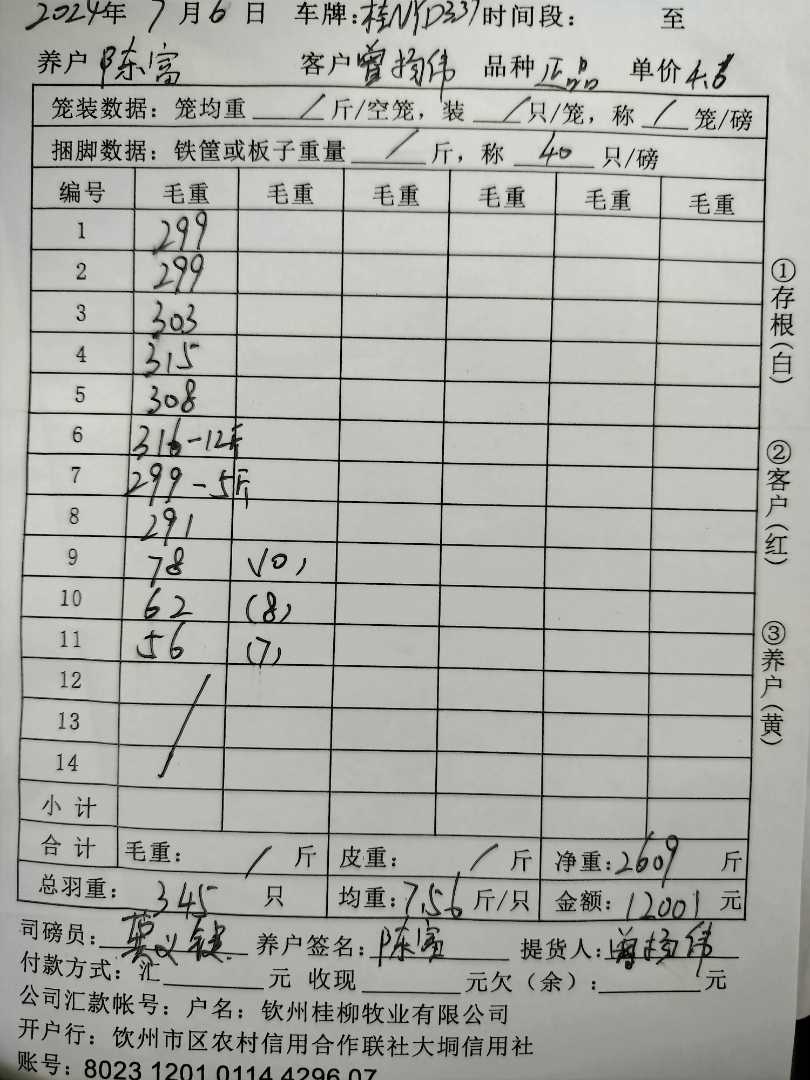 2024年 7月6日 车牌:桂NYD337时间段: 至
养户 陈富 客户 曾扬伟 品种 正品 单价 4.6
笼装数据:笼均重 / 斤/空笼,装 / 只/笼,称 / 笼/磅
捆脚数据:铁筐或板子重量 / 斤,称 40 只/磅
编号 毛重 毛重 毛重 毛重 毛重 毛重
1 299
2 299
3 303
4 315
5 308
6 316-12斤
7 299-5斤
8 291
9 78 (10)
10 62 (8)
11 56 (7)
12
13
14
小计
合计 毛重: / 斤 皮重: / 斤 净重:2609 斤
总羽重: 345 只 均重:7.56 斤/只 金额:12001 元
司磅员: 养户签名:陈富 提货人:曾扬伟
付款方式:汇 元 收现 元欠(余): 元
公司汇款帐号:户名:钦州桂柳牧业有限公司
开户行:钦州市区农村信用合作联社大垌信用社
账号:8023 1201 0114 4296 07
①存根(白)
②客户(红)
③养户(黄)